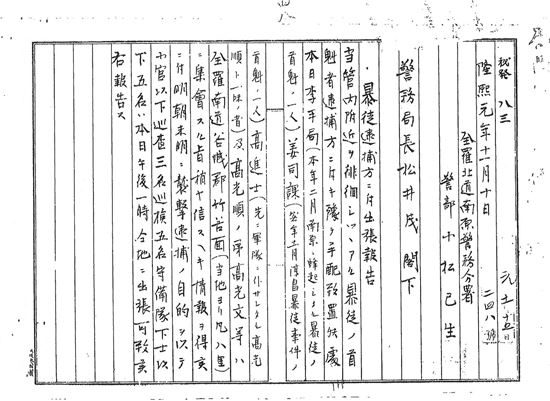 秘発 八三
隆熙元年十一月十日
全羅北道南原警務分署
警部 小松己生
警務局長松井茂 閣下
暴徒逮捕方ニ付出張報告
当管内附近ヲ徘徊シツヽアル暴徒ノ首
魁者逮捕方ニ付キ予テ手配致置候処
本日李平局(本年二月南原ニ蜂起シタル暴徒ノ
首魁ノ一人)姜司課(当年三月淳昌暴徒事件ノ
首魁ノ一人)高進士(先ニ軍隊ニ仆サレタル高光
順ト一味者)及高光順ノ弟高光文等ハ
全羅南道谷城郡竹谷面(当地ヨリ凡八里)
ニ集會スル旨稍ヤ信スヘキ情報ヲ得候
ニ付明朝未明ニ襲撃逮捕ノ目的ヲ以テ
小官以下巡査三名巡検五名守備隊下士以
下五名ハ本日午後一時 仝地ニ出張可致候
右報告ス